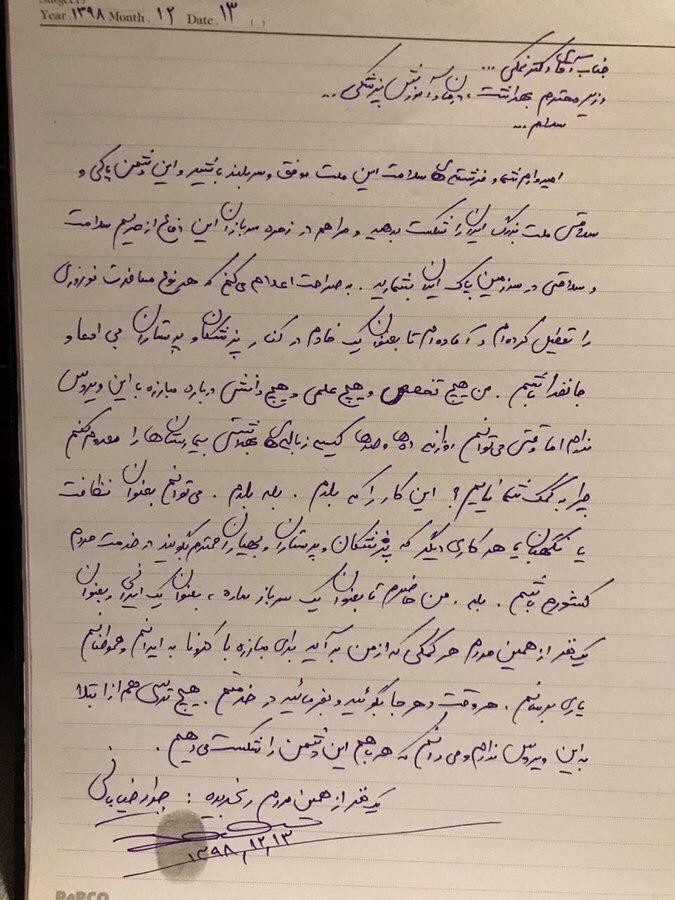 Year ۱۳۹۸ Month. ۱۲ Date. ۱۳ ( )
جناب آقای دکتر نمکی ...
وزیر محترم بهداشت، درمان و آموزش پزشکی ...
سلام ...
امیدوارم شما و فرشته‌های سلامت این ملت موفق و سربلند باشید و این دشمن پاکی و
سلامتی ملت بزرگ ایران را شکست بدهید و مرا هم در زمره سربازان این دفاع از حریم سلامت
و سلامتی در سرزمین پاک ایران بشمارید. به صراحت اعلام می‌کنم که هر نوع مسافرت نوروزی
را تعطیل کرده‌ام و آماده‌ام تا بعنوان یک خادم در کنار پزشکان و پرستاران بی ادعا و
جانفدا باشم. من هیچ تخصص و هیچ علمی و هیچ دانشی درباره مبارزه با این ویروس
ندارم اما وقتی می‌توانم روزانه ده‌ها و صدها کیسه زباله‌های بهداشتی بیمارستان‌ها را معدوم کنم
چرا به کمک شما نیایم؟ این کار را که بلدم. بله بلدم. می‌توانم بعنوان نظافت
یا نگهبان یا هر کاری دیگر که پزشکان و پرستاران و بهیاران محترم بگویند در خدمت مردم
کشورم باشم. بله. من حاضرم تا بعنوان یک سرباز ساده، بعنوان یک ایرانی و بعنوان
یک نفر از همین مردم هر کمکی که از من برآید برای مبارزه با کرونا به ایرانم و هموطنانم
یاری برسانم. هر وقت و هر جا بگوئید و بفرمائید در خدمتم. هیچ ترسی هم از ابتلا
به این ویروس ندارم و می‌دانم که همه با هم این دشمن را شکست می‌دهیم.
یک نفر از همین مردم رنجدیده: جواد خیابانی
۱۳۹۸/۱۲/۱۳
PAPCO